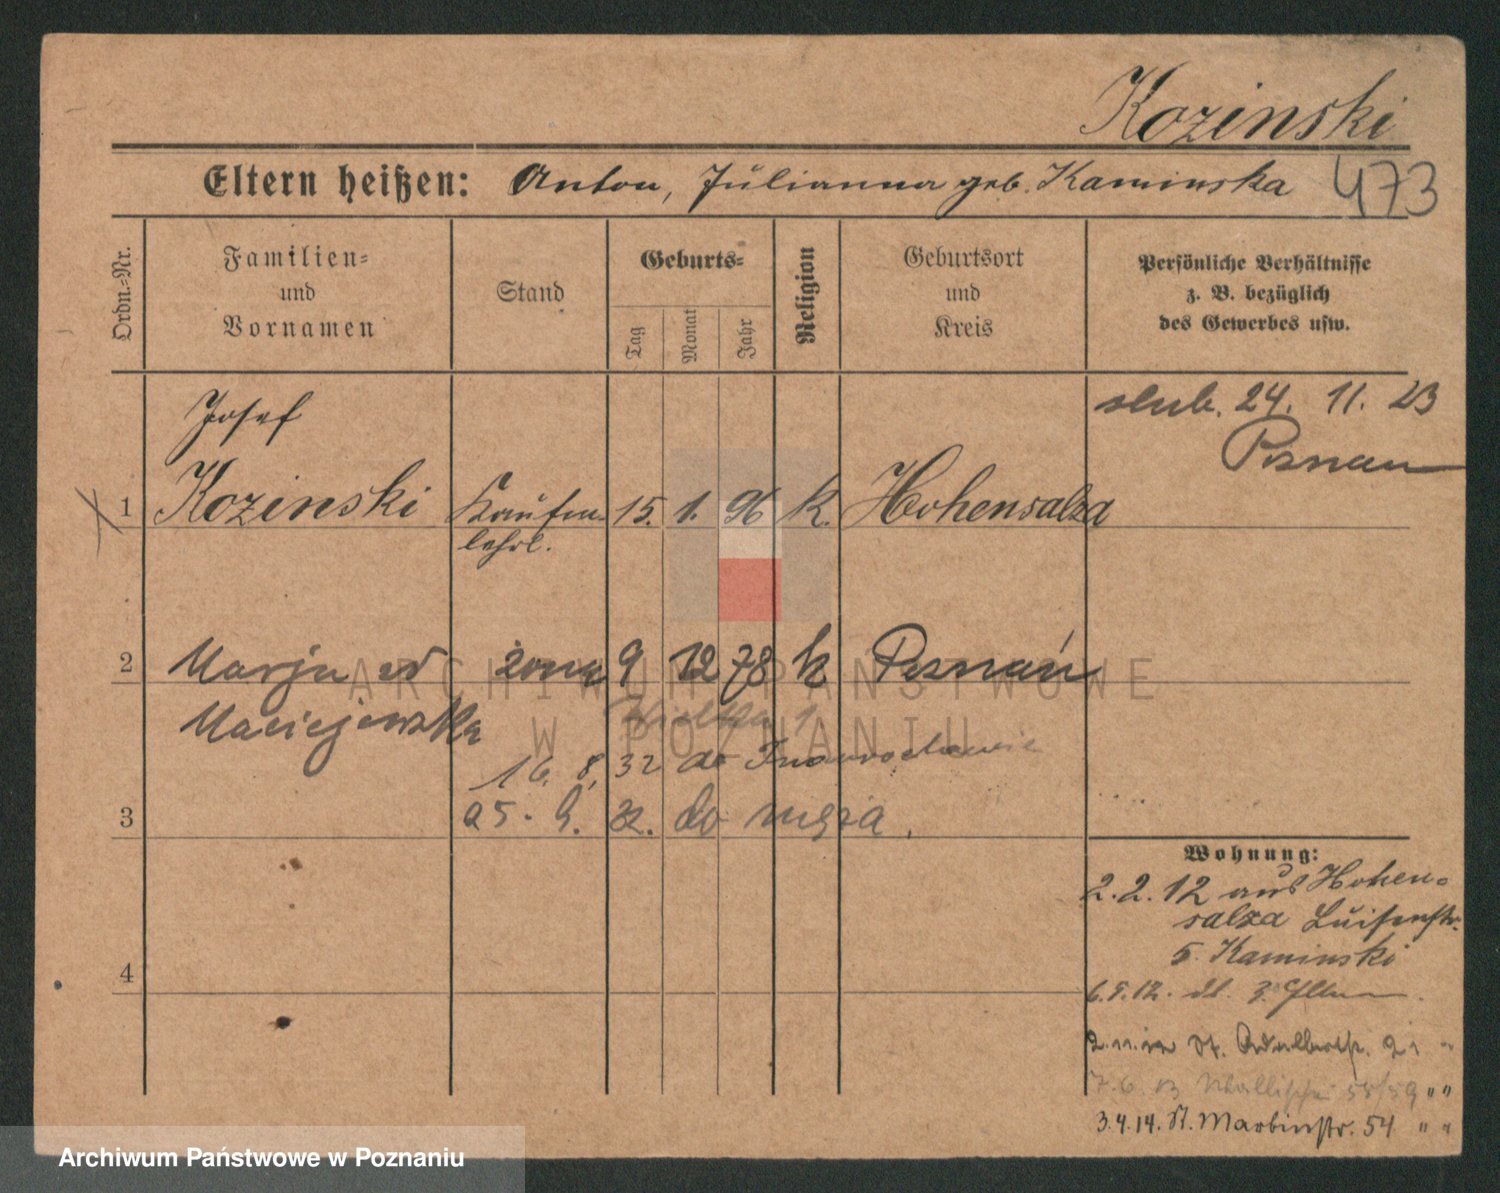 Kozinski
Eltern heißen: Anton, Julianna geb. Kaminska
473
Ordn.-Nr.
Familien-
und
Vornamen
Stand
Geburts-
Tag
Monat
Jahr
Religion
Geburtsort
und
Kreis
Persönliche Verhältnisse
z. B. bezüglich
des Gewerbes usw.
ślub. 24. 11. 23
Poznan
Josef
1 Kozinski Kaufm. 15. 1. 96 k. Hohensalza
lehrl.
2 Marja żona 9 12 78 k Poznań
Maciejewska
16. 8. 32 do Inowrocławia
3 25. 9. 32. do męża.
Wohnung:
2.2.12 aus Hohen-
salza Luisenstr.
5. Kaminski
4
St. Adalbertstr. 21 "
7.6.13 Wallischei 58/59 " "
3.4.14. St. Martinstr. 54 " "
ARCHIWUM PAŃSTWOWE
W POZNANIU
Archiwum Państwowe w Poznaniu